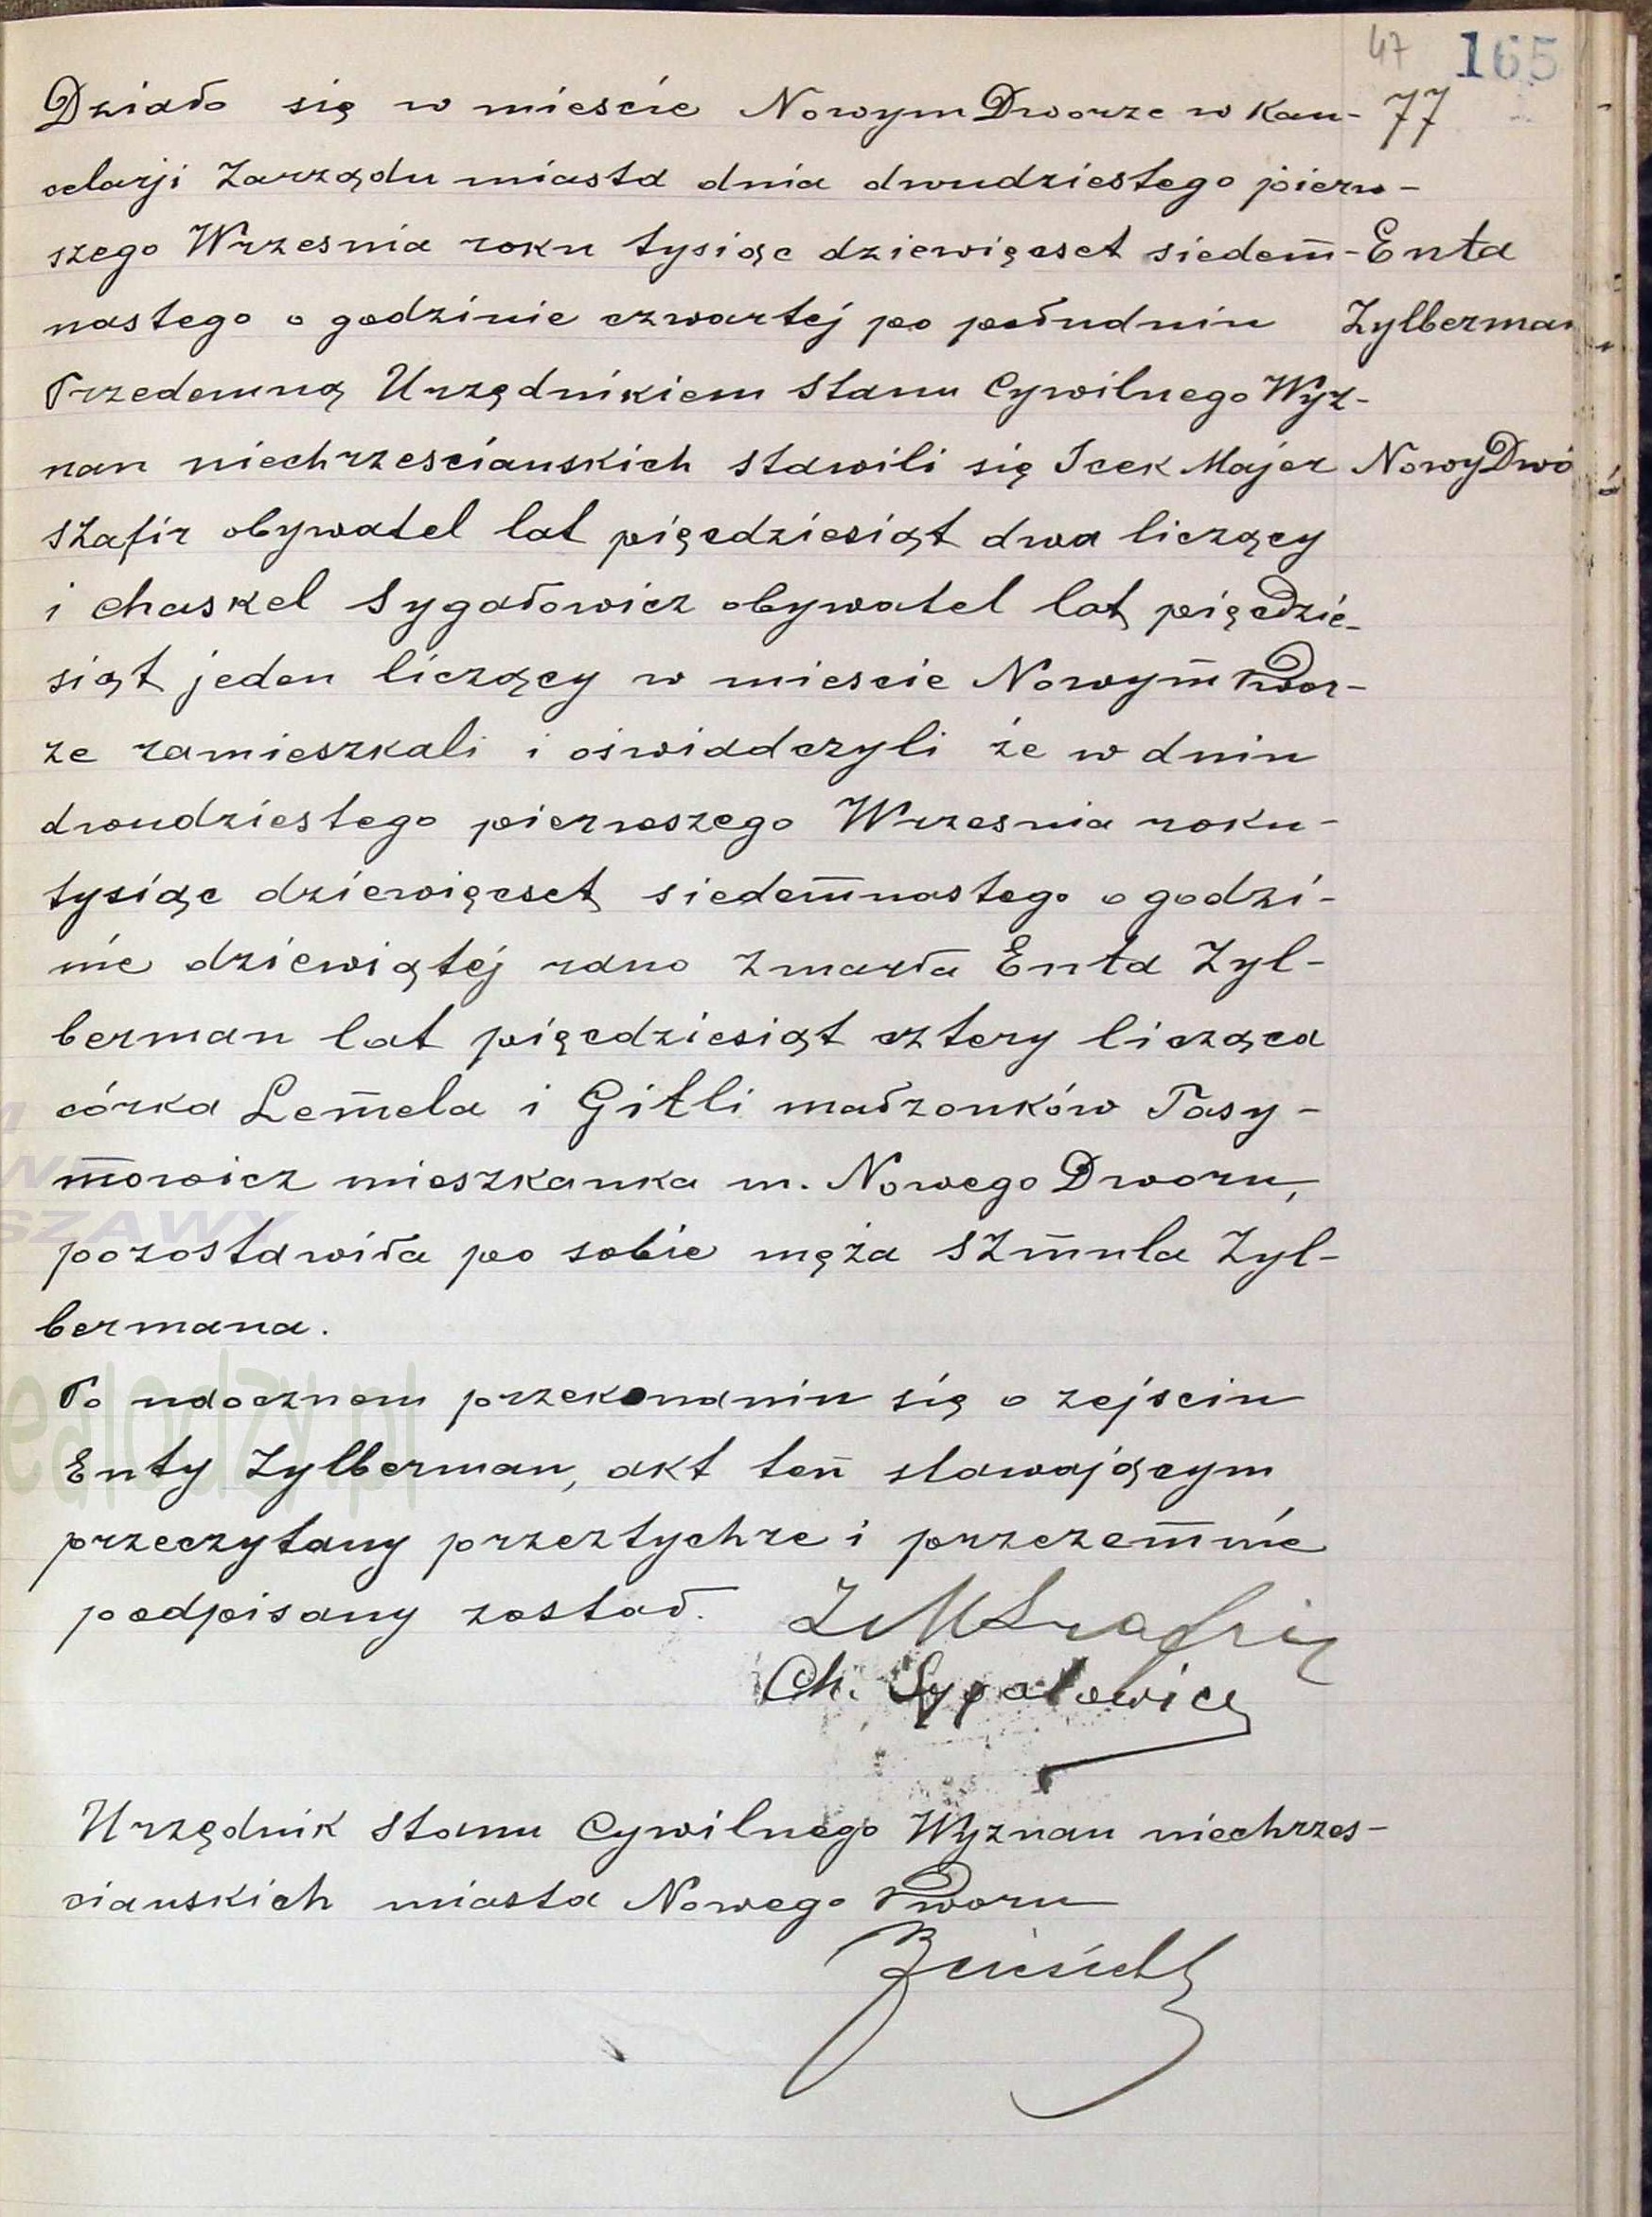 47 165
Działo się w mieście Nowym Dworze w Kan- 77
celarji Zarządu miasta dnia dwudziestego pierw-
szego Wrzesnia roku tysiąc dziewięcset siedem-
Enta
nastego o godzinie czwartej po południu
Zylberman
Przedemną Urzędnikiem Stanu Cywilnego Wyz-
nan niechrzesciańskich stawili się Icek Majer
Nowy Dwó
Szafir obywatel lat pięcdziesiąt dwa liczący
i Chaskel Sygałowicz obywatel lat pięcdzie-
siąt jeden liczący w miescie Nowym Dwor-
ze zamieszkali i oświadczyli że w dniu
dwudziestego pierwszego Wrzesnia roku-
tysiąc dziewięcset siedemnastego o godzi-
nie dziewiątej rano zmarła Enta Zyl-
berman lat pięcdziesiąt cztery licząca
córka Lemela i Gitli małzonków Pasy-
mowicz mieszkanka m. Nowego Dworu,
pozostawiła po sobie męża Szmula Zyl-
bermana.
Po naocznem przekonaniu się o zejsciu
Enty Zylberman, akt ten stawającym
przeczytany przeztychze i przezemnie
podpisany został.
Szafir
Ch. Sygalowicz
Urzędnik Stanu Cywilnego Wyznan niechrzes-
cianskich miasta Nowego Dworu
SZAWY
ealodzy.pl